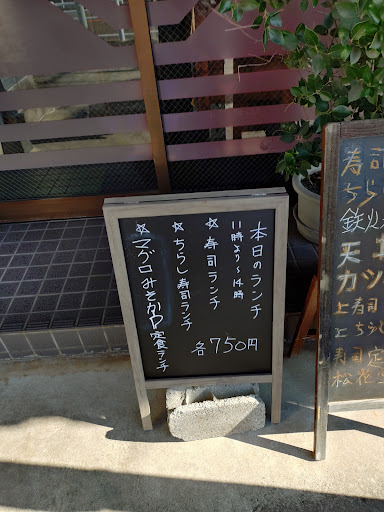 本日のランチ
11時より〜14時
☆寿司ランチ
☆ちらし寿司ランチ
☆マグロみそかつ定食ランチ
各750円
寿司
ちら
鉄火
天丼
カツ
上寿司
上ちら
寿司定
松花